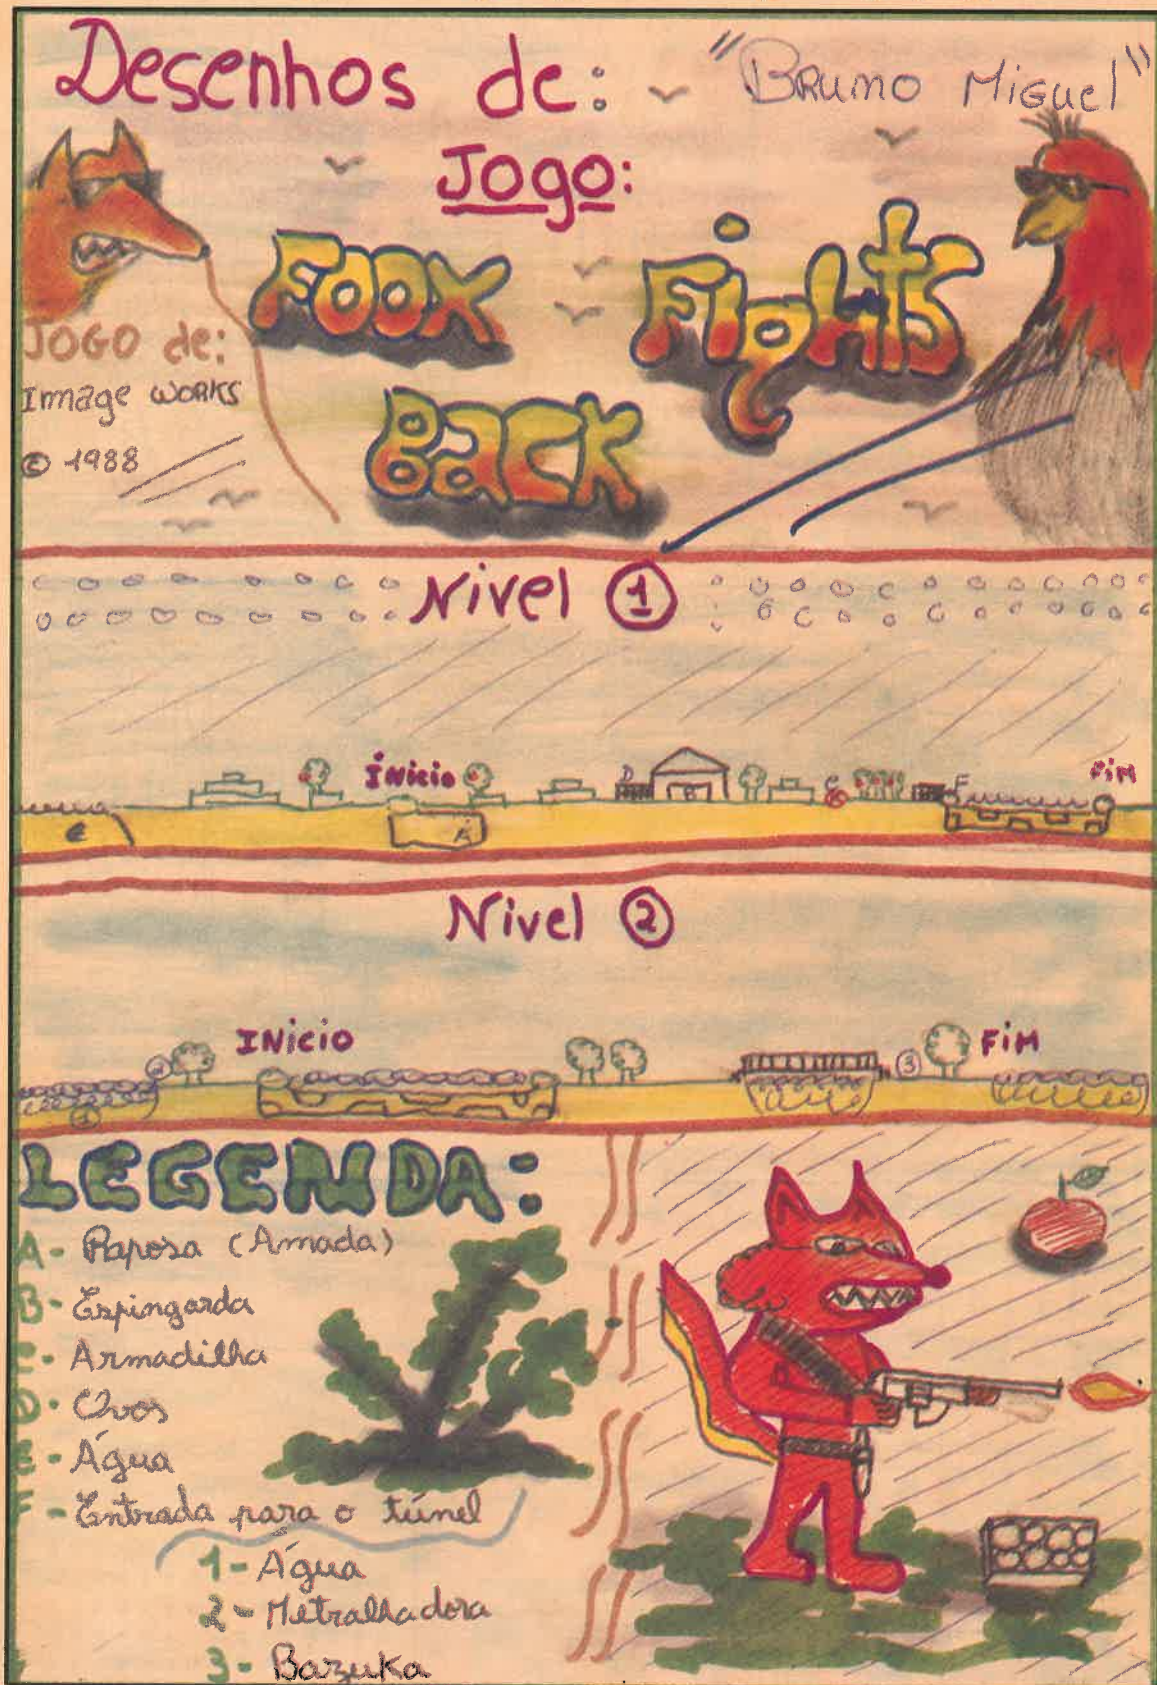 Desenhos de: "BRUNO MIGUEL"
Jogo:
FOOX FIGHTS
BACK
JOGO de:
Image WORKS
© 1988
Nivel 1
INicio
FiM
D
B
C
F
E
A
Nivel 2
INicio
FiM
2
3
1
LEGENDA:
A - Raposa (Amada)
B - Espingarda
C - Armadilha
D - Ovos
E - Água
F - Entrada para o túnel
1 - Água
2 - Metralhadora
3 - Bazuka